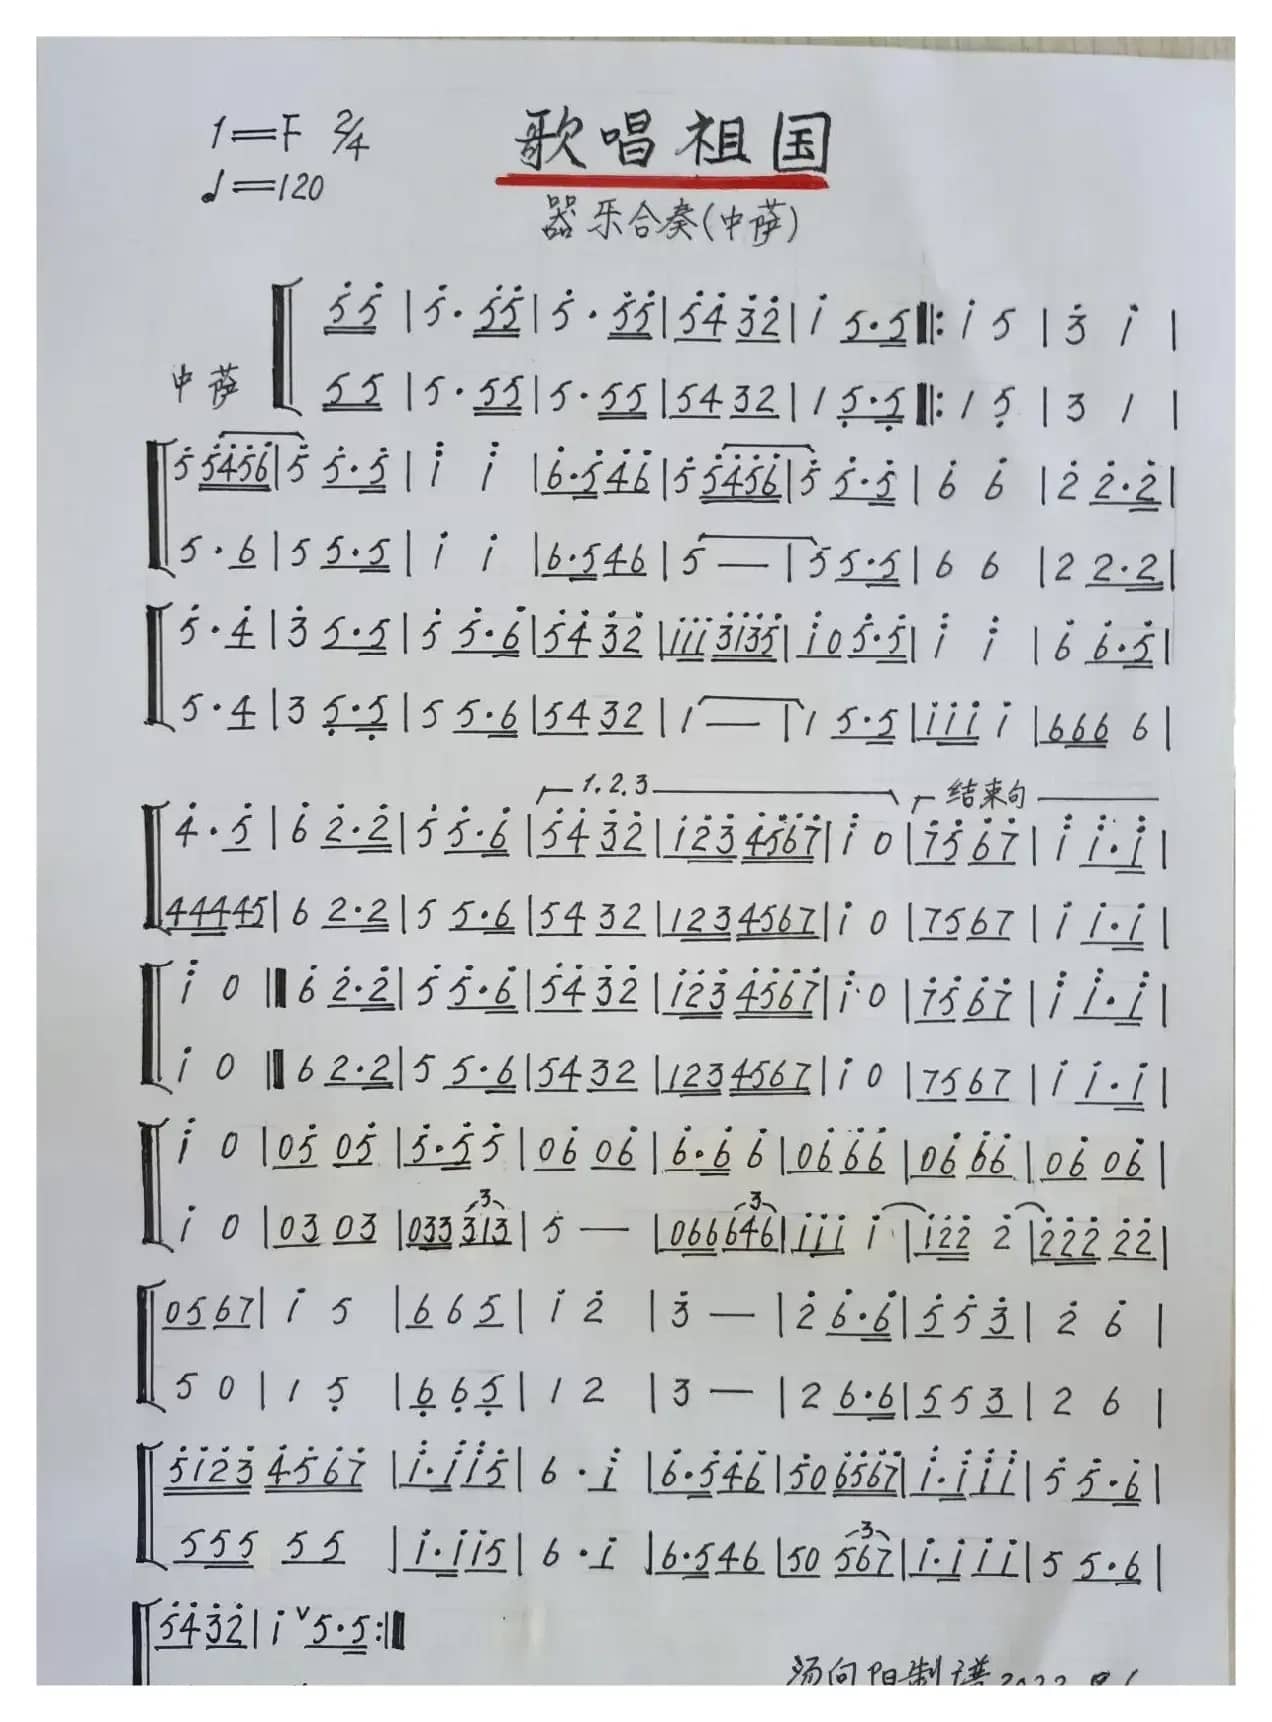 1=F 2/4 歌唱祖国
♩=120 器乐合奏(中萨)
5̇5̇ | 5̇· 5̇5̇ | 5̇· 5̇5̇ | 5̇4̇ 3̇2̇ | 1̇ 5·5 ‖: 1̇ 5 | 3̇ 1̇ |
中萨 55 | 5· 55 | 5· 55 | 54 32 | 1 5̣·5̣ ‖: 1 5̣ | 3 1 |
5̇ 5̇4̇5̇6̇ | 5̇ 5̇·5̇ | 1̇ 1̇ | 6̇·5̇ 4̇6̇ | 5̇ 5̇4̇5̇6̇ | 5̇ 5̇·5̇ | 6̇ 6̇ | 2̇ 2̇·2̇ |
5·6 | 5 5·5 | 1̇ 1̇ | 6·5 46 | 5 — | 5 5·5 | 6 6 | 2 2·2 |
5̇·4̇ | 3̇ 5·5 | 5̇ 5̇·6̇ | 5̇4̇ 3̇2̇ | 1̇1̇1̇ 3̇1̇3̇5̇ | 1̇0 5̇·5̇ | 1̇ 1̇ | 6̇ 6̇·5̇ |
5·4 | 3 5̣·5̣ | 5 5·6 | 54 32 | 1 — | 1 5·5 | 1̇1̇1̇ 1̇ | 666 6 |
1.2.3 结束句
4̇·5̇ | 6̇ 2̇·2̇ | 5̇ 5̇·6̇ | 5̇4̇ 3̇2̇ | 1̇2̇3̇ 4̇5̇6̇7̇ | 1̇ 0 | 7̇5̇ 6̇7̇ | 1̇ 1̇·1̇ |
444445 | 6 2·2 | 5 5·6 | 54 32 | 123 4567 | 1̇ 0 | 75 67 | 1̇ 1̇·1̇ |
1̇ 0 ‖ 6̇ 2̇·2̇ | 5̇ 5̇·6̇ | 5̇4̇ 3̇2̇ | 1̇2̇3̇ 4̇5̇6̇7̇ | 1̇ 0 | 7̇5̇ 6̇7̇ | 1̇ 1̇·1̇ |
1̇ 0 ‖ 6 2·2 | 5 5·6 | 54 32 | 123 4567 | 1̇ 0 | 75 67 | 1̇ 1̇·1̇ |
1̇ 0 | 05̇ 05̇ | 5̇·5̇ 5̇ | 06̇ 06̇ | 6̇·6̇ 6̇ | 06̇ 6̇6̇ | 06̇ 6̇6̇ | 06̇ 06̇ |
1̇ 0 | 03 03 | 033 313 | 5 — | 066 646 | 1̇1̇1̇ 1̇ | 1̇2̇2̇ 2̇ | 2̇2̇2̇ 2̇2̇ |
05 67 | 1̇ 5 | 6 6 5 | 1̇ 2̇ | 3̇ — | 2̇ 6̇·6̇ | 5̇ 5̇ 3̇ | 2̇ 6̇ |
5 0 | 1 5̣ | 6̣ 6̣ 5̣ | 1 2 | 3 — | 2 6·6 | 5 5 3 | 2 6 |
5̇1̇2̇3̇ 4̇5̇6̇7̇ | 1̇·1̇ 1̇5̇ | 6·1̇ | 6̇·5̇ 4̇6̇ | 5̇0 6̇5̇6̇7̇ | 1̇·1̇ 1̇1̇ | 5̇ 5̇·6̇ |
555 55 | 1̇·1̇ 1̇5 | 6·1̇ | 6·5 46 | 50 567 | 1̇·1̇ 1̇1̇ | 5 5·6 |
5̇4̇ 3̇2̇ | 1̇ ∨ 5·5 :‖
汤向阳制谱